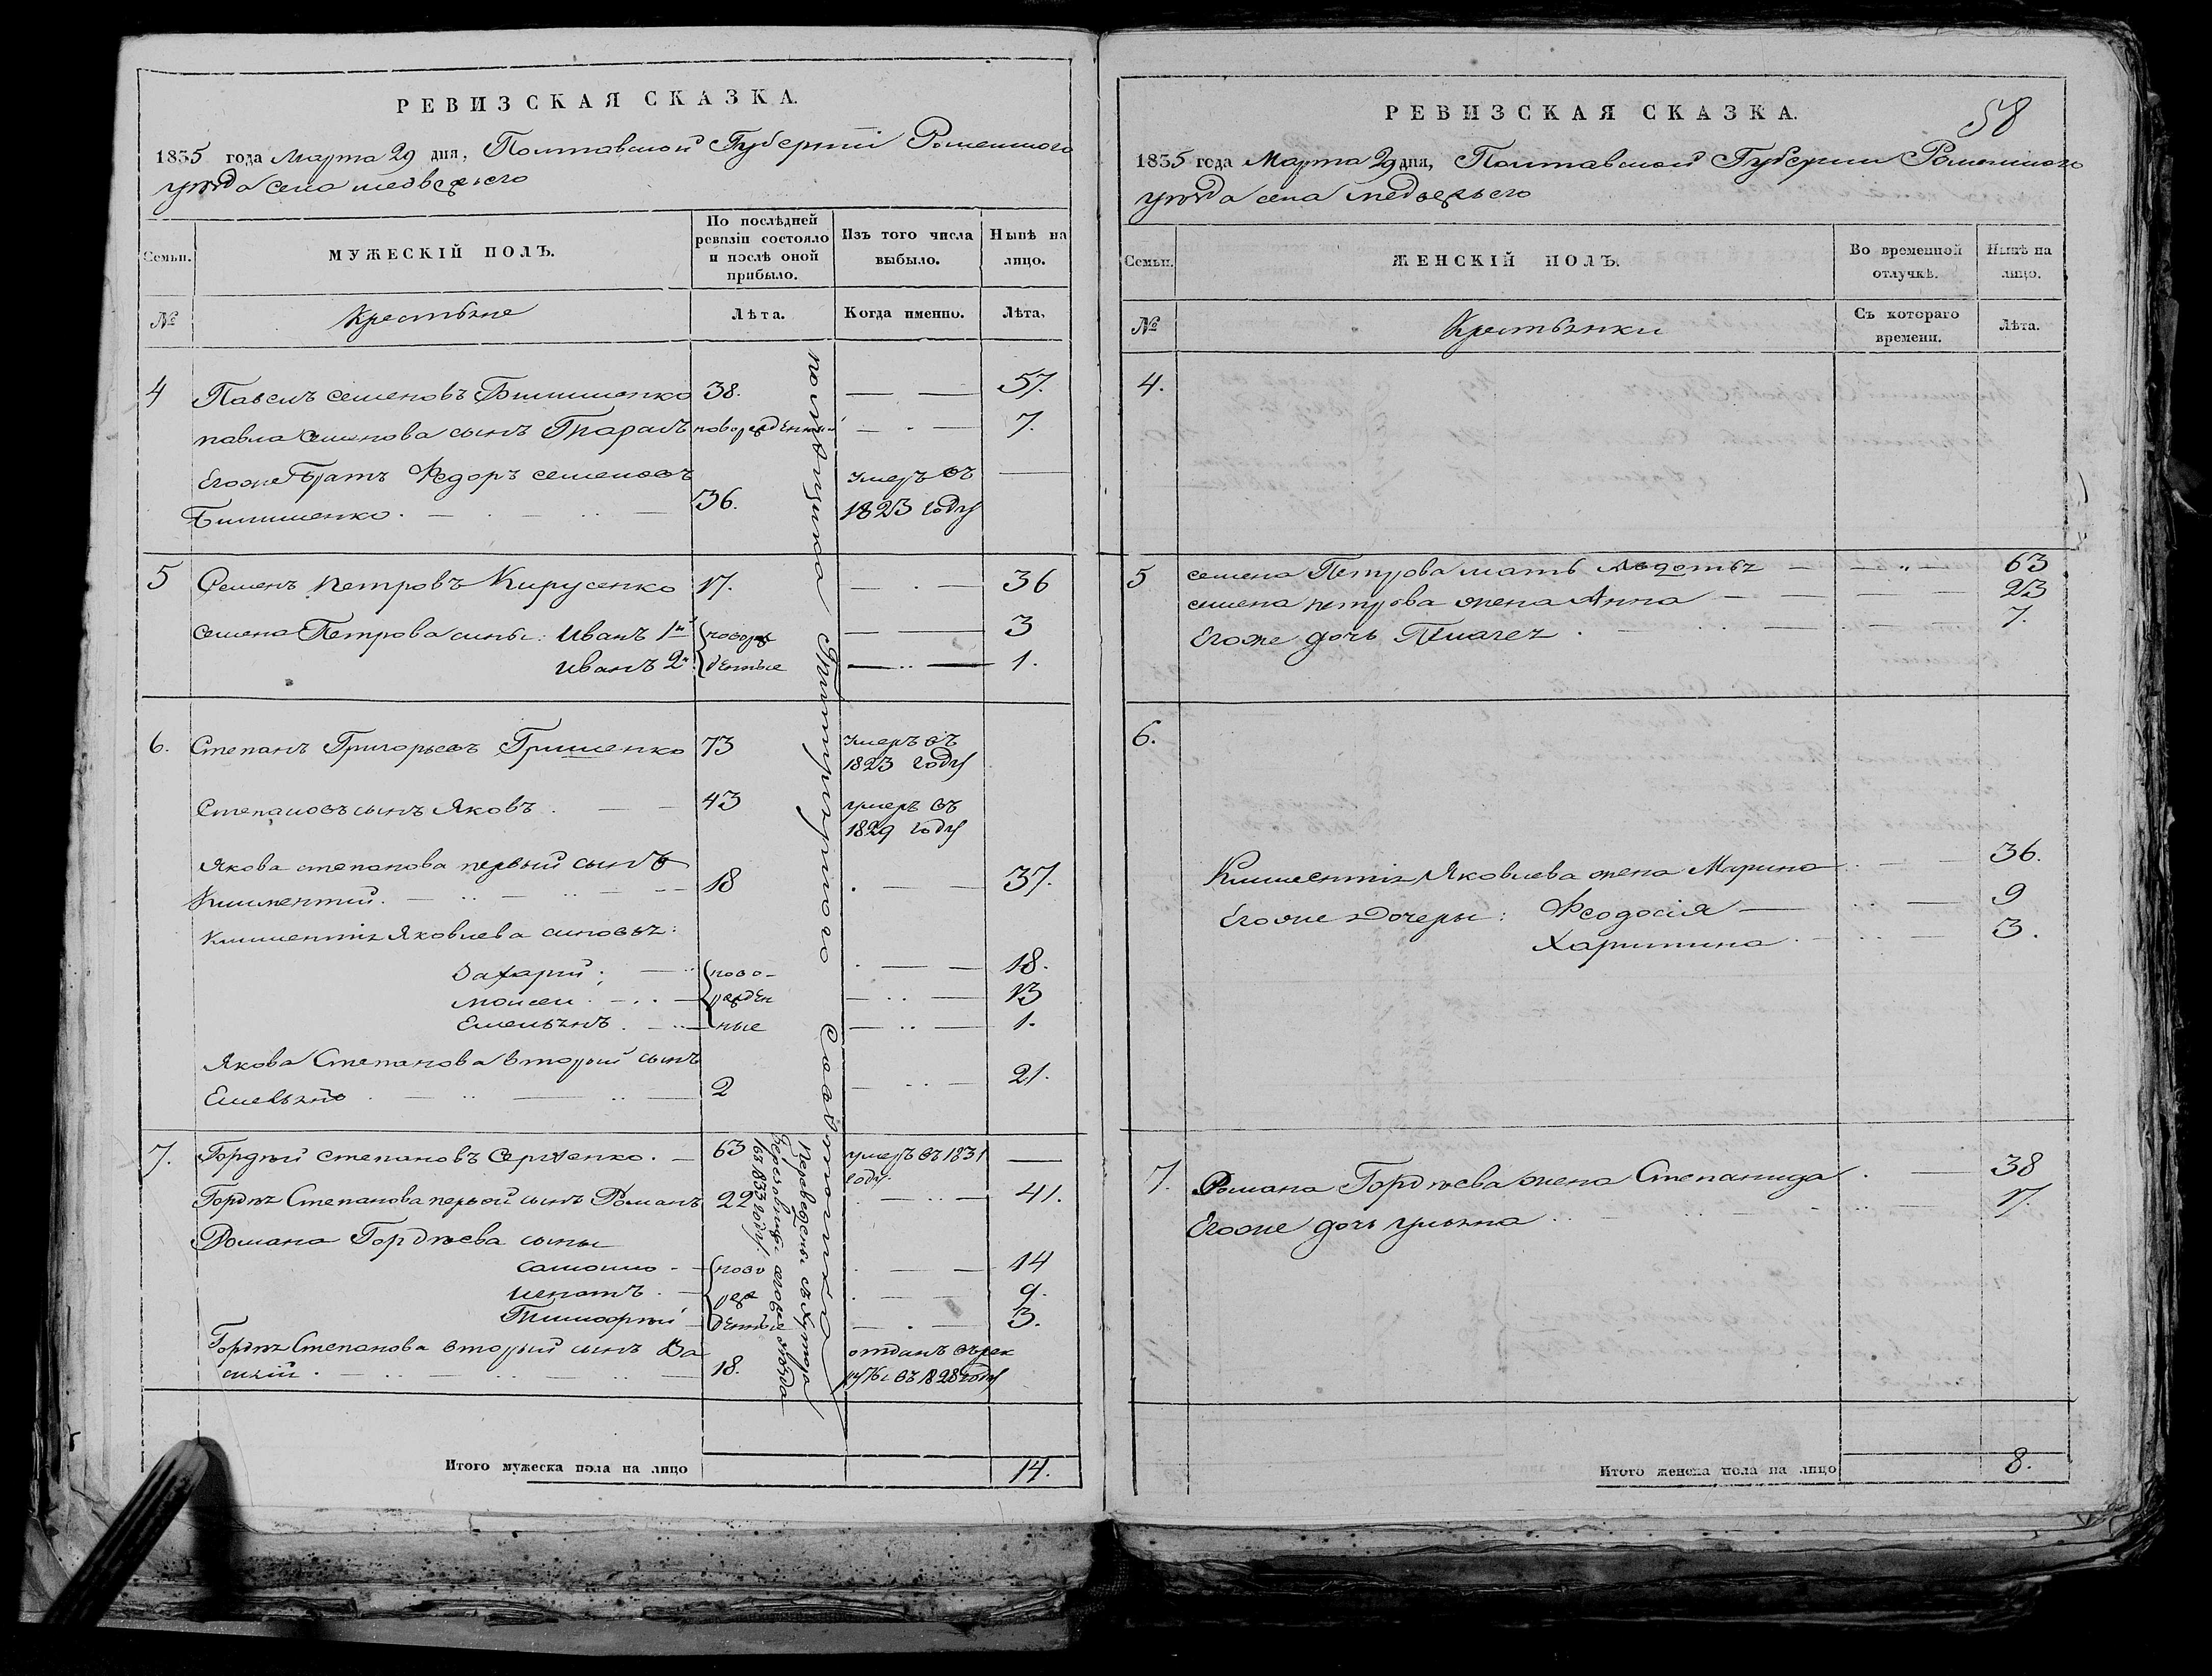 РЕВИЗСКАЯ СКАЗКА.
1835 года Марта 29 дня, Полтавской Губернии Роменского
уѣзда села медвежьего
Семьи.
МУЖЕСКІЙ ПОЛЪ.
По послѣдней ревизіи состояло и послѣ оной прибыло.
Изъ того числа выбыло.
Нынѣ на лицо.
№
Крестьяне
Лѣта.
Когда именно.
Лѣта,
4 Павелъ семеновъ 38. 57.
павла семенова сынъ Тарасъ новорожденный 7.
Егоже братъ Федоръ семеновъ умеръ въ
36. 1823 году
5 Семенъ петровъ Кирусенко 17. 36
семена Петрова сины: Иванъ 1й новорож 3
Иванъ 2й денные 1.
6. Степанъ Григорьевъ Гришенко 73 умеръ въ
1823 году
Степановъ сынъ Яковъ 43 умеръ въ
1829 году
Якова степанова первый сынъ
Климентий 18 37.
Климентія Яковлева сыновья:
Захарий ново- 18.
моисей рожден 13
Емельянъ ные 1.
Якова Степанова вторый сынъ
Емельянъ 2 21.
7. Гордѣй степановъ Сергѣенко 63 умеръ въ 1831
году
Гордѣя Степанова первой сынъ Романъ 22 41.
Романа Гордѣева сыны
самойло ново 14
игнатъ рож 9.
Тимофѣй денные 3.
Гордѣя Степанова вторый сынъ Ва отданъ въ рек
силій 18. руты въ 1828 году
Переведены съ хутора
тогожъ уѣзда
въ 1833 году
Итого мужеска пола на лицо 14.
58
РЕВИЗСКАЯ СКАЗКА.
1835 года Марта 29 дня, Полтавской Губернии Роменского
уѣзда села медвежьего
Семьи.
ЖЕНСКІЙ ПОЛЪ.
Во временной отлучкѣ.
Нынѣ на лицо.
№
Крестьянки
Съ котораго времени.
Лѣта.
4.
5 семена Петрова мать Авдотья 63
семена петрова жена Анна 23
Егоже дочь Пелагея 7.
6.
Климентія Яковлева жена Марина 36.
Егоже дочеры: Феодосія 9
Харитина 3.
7. Романа Гордѣева жена Степанида 38
Егоже дочь ульяна 17.
Итого женска пола на лицо 8.